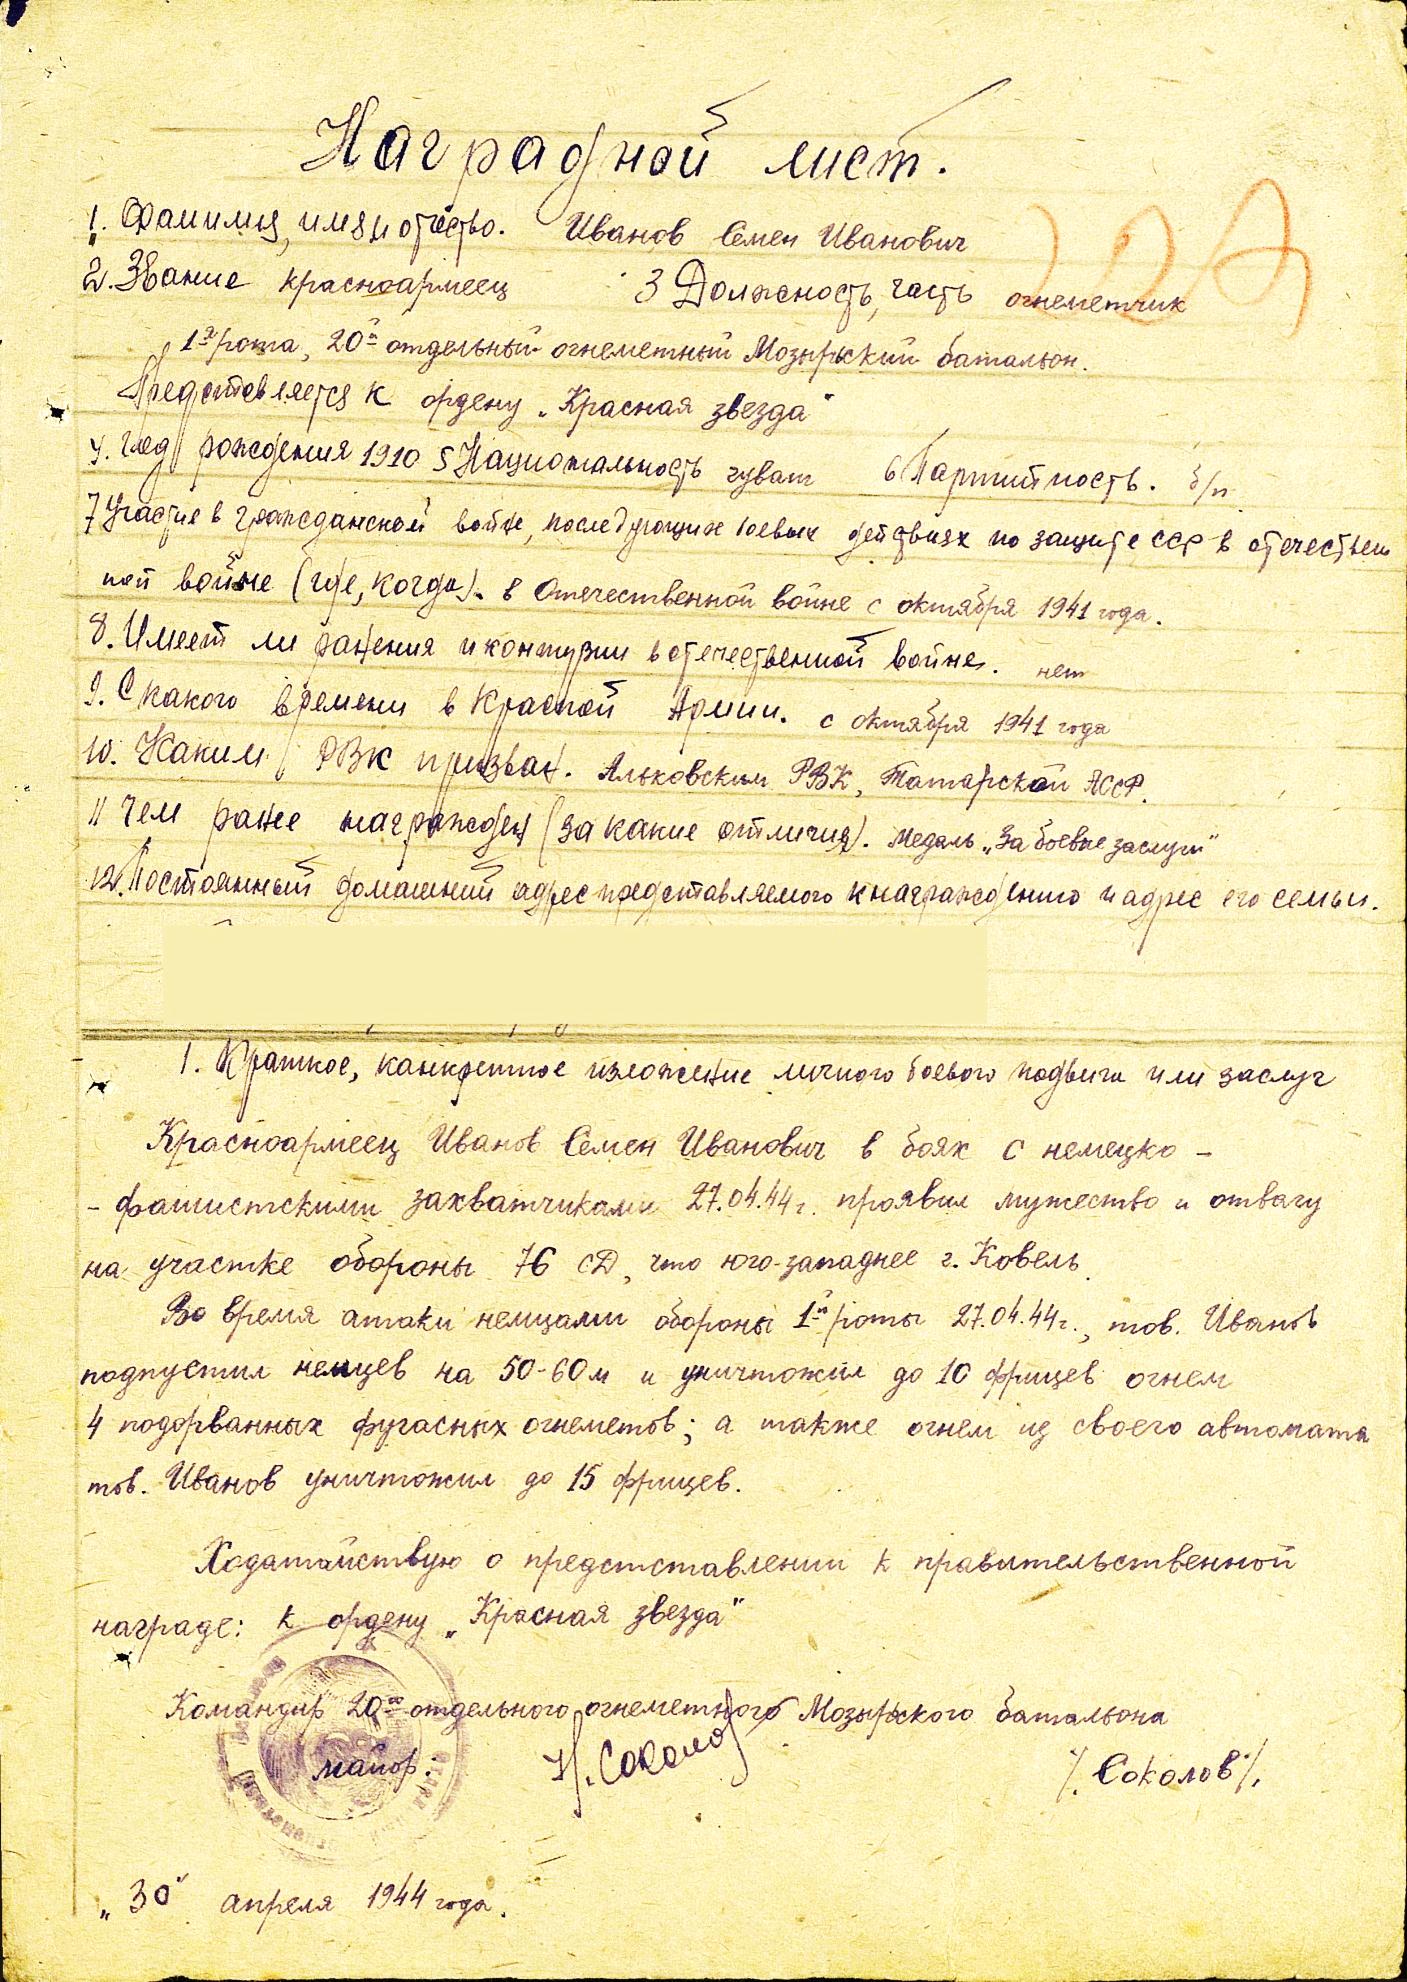 Наградной лист.
22А
1. Фамилия, имя и отчество. Иванов Семен Иванович
2. Звание красноармеец 3 Должность, часть огнеметчик
1я рота, 20й отдельный огнеметный Мозырьский батальон.
Представляется к ордену „Красная звезда"
4. Год рождения 1910 5 Национальность чуваш 6 Партийность. б/п
7 Участие в гражданской войне, последующих боевых действиях по защите СССР в отечествен
ной войне (где, когда). в Отечественной войне с октября 1941 года.
8. Имеет ли ранения и контузии в отечественной войне. нет
9. С какого времени в Красной Армии. с октября 1941 года
10. Каким РВК призван. Альковским РВК, Татарской АССР.
11 Чем ранее награжден (за какие отличия). медаль „За боевые заслуги"
12. Постоянный домашний адрес представляемого к награждению и адрес его семьи.
1. Краткое, канкретное изложение личного боевого подвига или заслуг
Красноармеец Иванов Семен Иванович в боях с немецко -
- фашистскими захватчиками 27.04.44 г. проявил мужество и отвагу
на участке обороны 76 СД, что юго-западнее г. Ковель.
Во время атаки немцами обороны 1й роты 27.04.44 г., тов. Иванов
подпустил немцев на 50-60 м и уничтожил до 10 фрицев огнем
4 подорванных фугасных огнеметов; а также огнем из своего автомата
тов. Иванов уничтожил до 15 фрицев.
Ходатайствую о предстставлении к правительственной
награде: к ордену „Красная звезда"
Командир 20го отдельного огнеметного Мозырьского батальона
майор: Н. Соколов /Соколов/.
„30" апреля 1944 года.